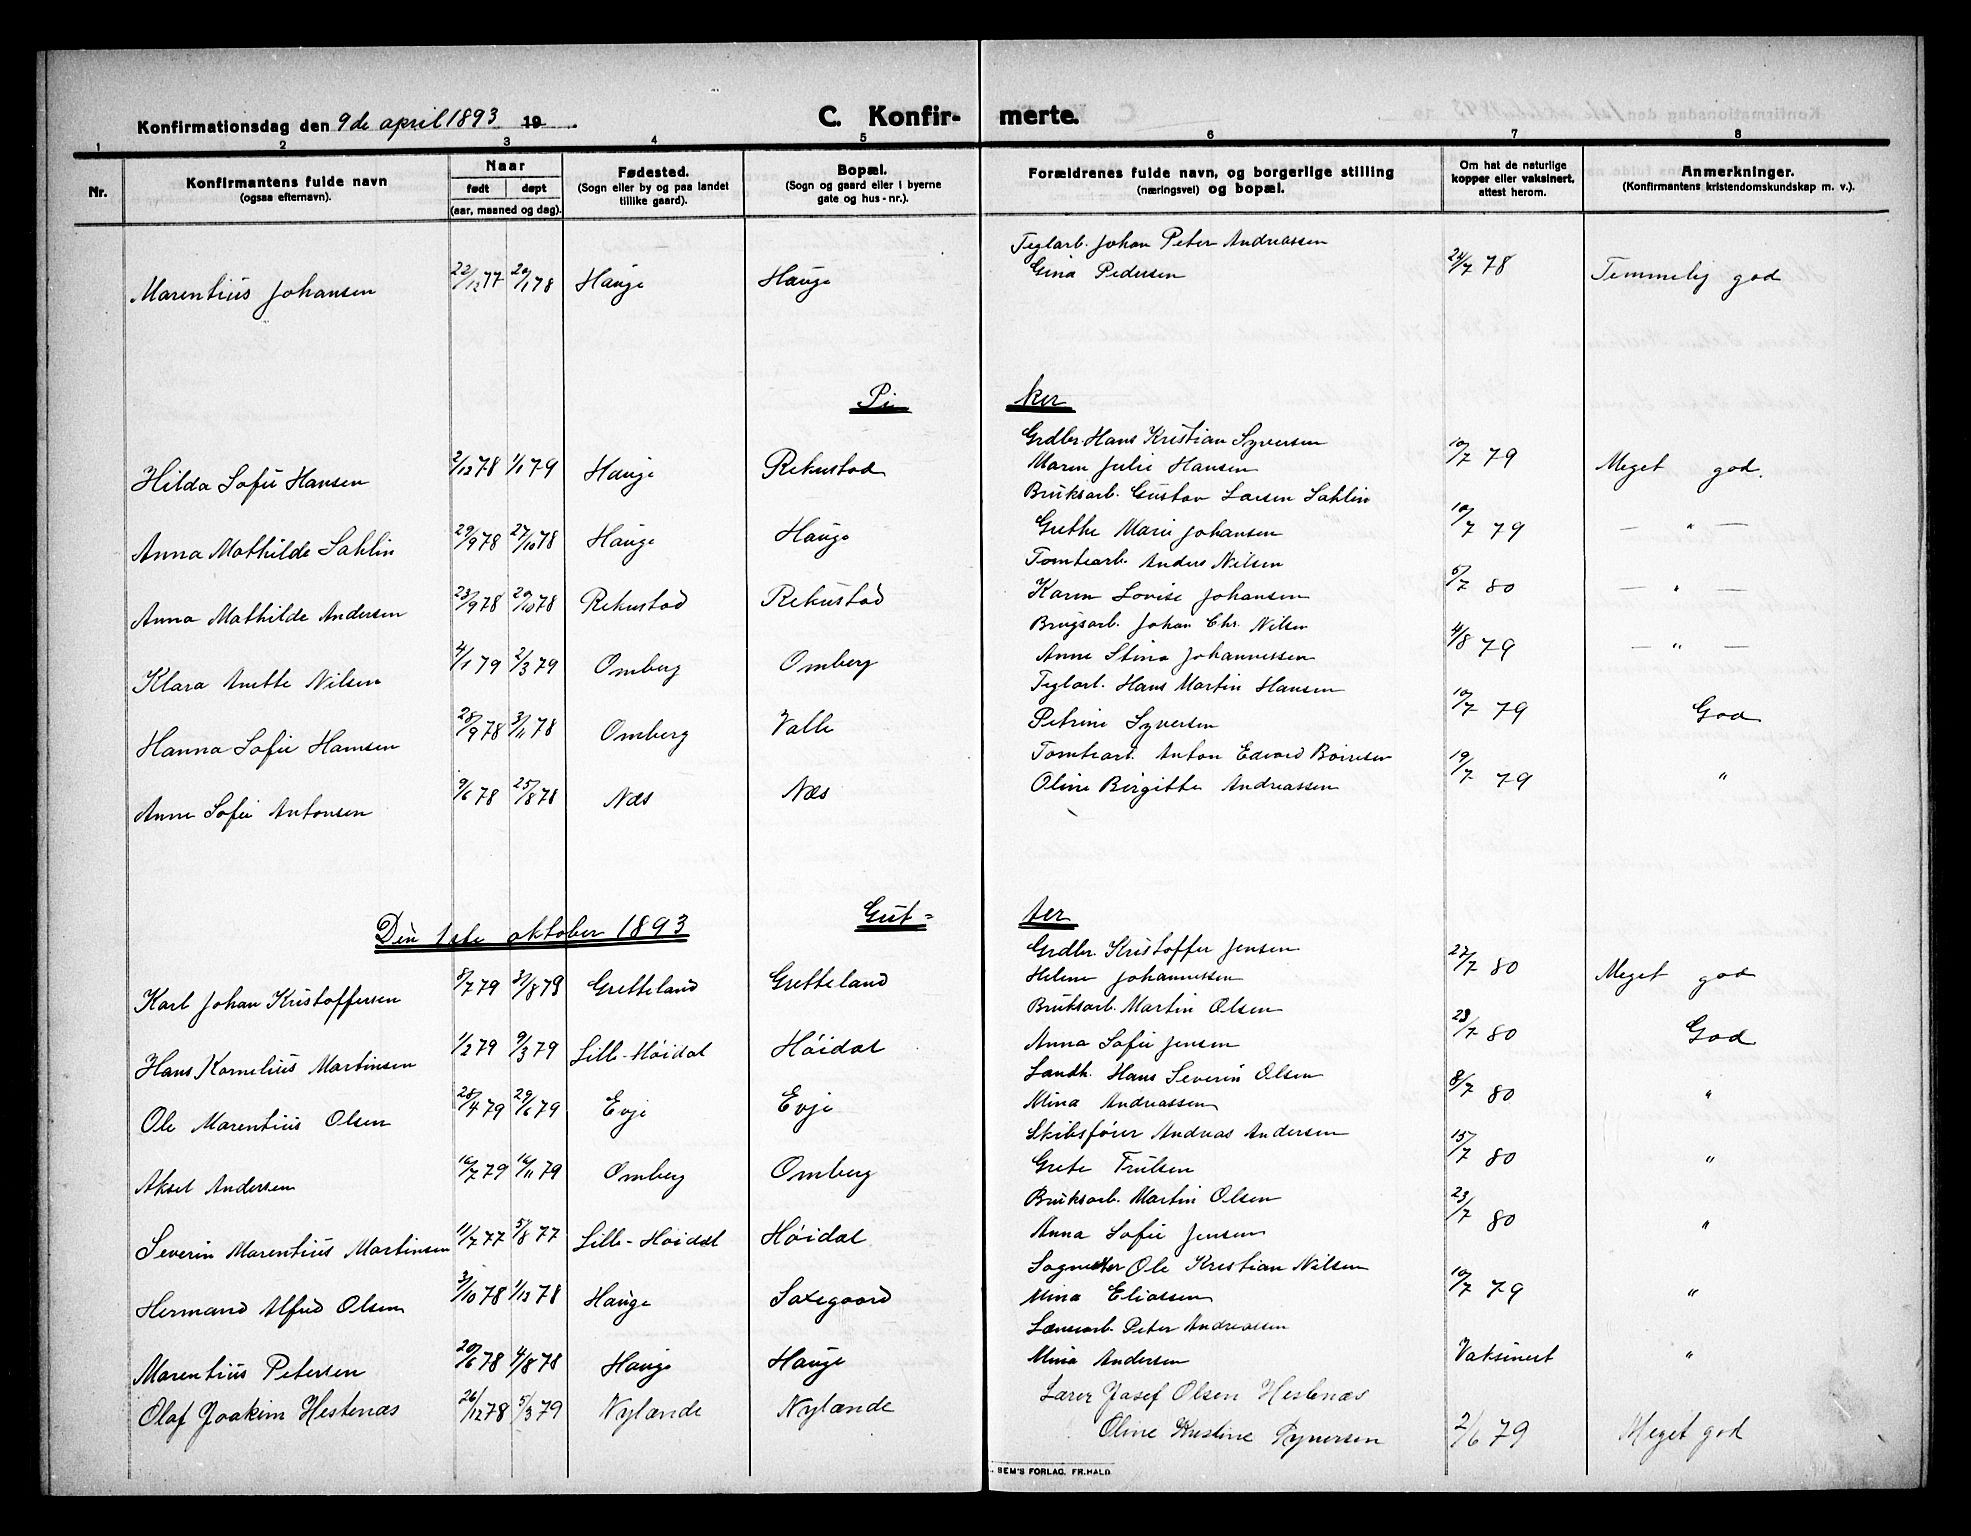 Konfirmationsdag den 9de april 1893 19
C. Konfir-merte.
1 2 3 4 5 6 7 8
Nr.
Konfirmantens fulde navn (ogsaa efternavn).
Naar født døpt (aar, maaned og dag).
Fødested. (Sogn eller by og paa landet tillike gaard).
Bopæl. (Sogn og gaard eller i byerne gate og hus-nr.).
Forældrenes fulde navn, og borgerlige stilling (næringsvei) og bopæl.
Om hat de naturlige kopper eller vaksinert, attest herom.
Anmerkninger. (Konfirmantens kristendomskundskap m. v.).
Teglarb. Johan Peter Andreassen
Marentius Johansen 22/12 77 20/1 78 Hauge Hauge Gina Pedersen 24/7 78 Temmelig god
Pi ker
Grdbr. Hans Kristian Syversen
Hilda Sofie Hansen 2/12 78 1/1 79 Hauge Rekustad Maren Julie Hansen 10/7 79 Meget god.
Bruksarb. Gustav Larsen Sahlin
Anna Mathilde Sahlin 29/9 78 27/10 78 Hauge Hauge Grethe Marie Johansen 10/7 79 — " —
Tomtearb. Anders Nilsen
Anna Mathilde Andersen 23/9 78 20/10 78 Rekustad Rekustad Karen Lovise Johansen 5/7 80 — " —
Brugsarb. Johan Chr. Nilsen
Klara Anette Nilsen 4/1 79 2/3 79 Omberg Omberg Anne Stina Johannessen 4/8 79 — " —
Teglarb. Hans Martin Hansen
Hanna Sofie Hansen 28/9 78 3/11 78 Omberg Valle Petrine Syversen 10/7 79 God
Tomtearb. Anton Edvard Børresen
Anne Sofie Antonsen 9/6 78 25/8 78 Næs Næs Oline Birgitte Andreassen 19/7 79 "
Den 1ste oktober 1893 Gut- ter
Grdbr. Kristoffer Jensen
Karl Johan Kristoffersen 8/7 79 31/8 79 Gretteland Gretteland Helene Johannessen 27/7 80 Meget god
Bruksarb. Martin Olsen
Hans Kornelius Martinsen 1/2 79 9/3 79 Lille-Høidal Høidal Anna Sofie Jensen 23/7 80 God
Landh. Hans Severin Olsen
Ole Marentius Olsen 28/4 79 29/6 79 Evje Evje Mina Andreassen 8/7 80 "
Skibsfører Andreas Andersen
Aksel Andersen 10/7 79 16/11 79 Omberg Omberg Grete Trulsen 15/7 80 "
Bruksarb. Martin Olsen
Severin Marentius Martinsen 11/7 77 5/8 77 Lille-Høidal Høidal Anna Sofie Jensen 23/7 80 "
Ole Kristian Nilsen
Hermand Alfred Olsen 3/10 78 1/12 78 Hauge Saxegaard Mina Eliassen 10/7 79 "
Peter Andreassen
Marentius Petersen 20/6 78 4/8 78 Hauge Hauge Mina Andersen Vaksinert "
Lærer Josef Olsen Hestenæs
Olaf Joakim Hestenæs 26/12 78 5/3 79 Nylænde Nylænde Oline Kristine Syversen 2/6 79 Meget god
SEM'S FORLAG, FR.HALD